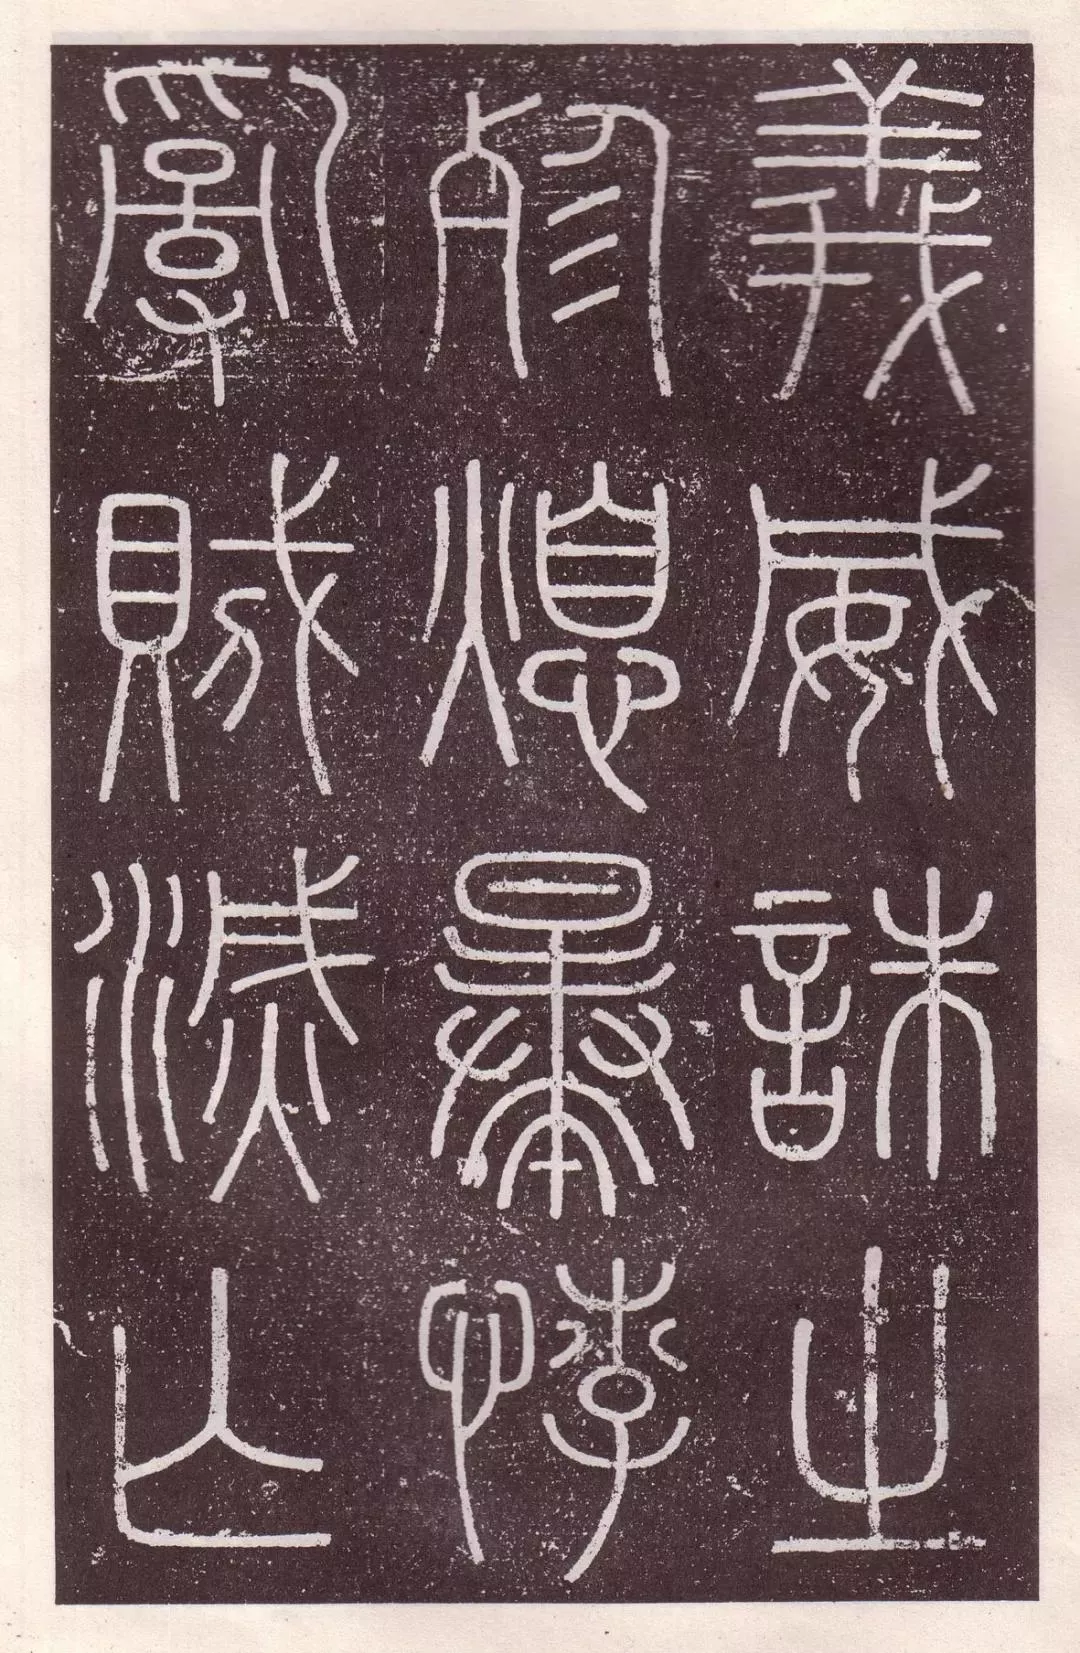 義威誅之
殄熄暴悖
亂賊滅亡